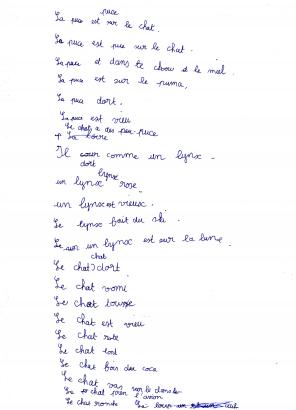 puce
La puce est sur le chat.
La puce est pue sur le chat.
La puce et dans le chow et le mal.
La puce est sur le puma,
La puce dort.
La puce est vieu
Le chat a des puce
Il cour comme un lynx
dort
lynx
un lynx rose
un lynx est vreux.
Le lynx fait du ski.
Le un lynx est sur la lune
chat
Le chat dort
Le chat vomi
Le chat tousse
Le chat est vieu
Le chat rote
Le chat tort
Le chat bois du coca
Le chat vas sur le
Le chat l'avion
Le chat ronde Le loup